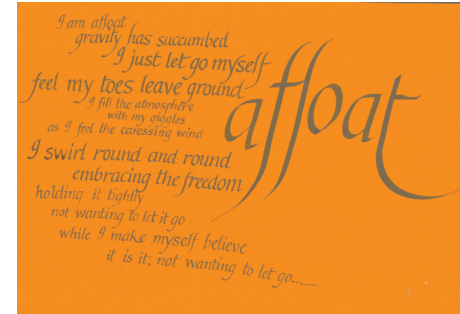 I am affoat
gravity has succumbed
I just let go myself
feel my toes leave ground
I fill the atmosphere
with my giggles
as I feel the caressing wind
I swirl round and round
embracing the freedom
holding it tightly
not wanting to let it go
while I make myself believe
it is it. not wanting to let go...
affoat